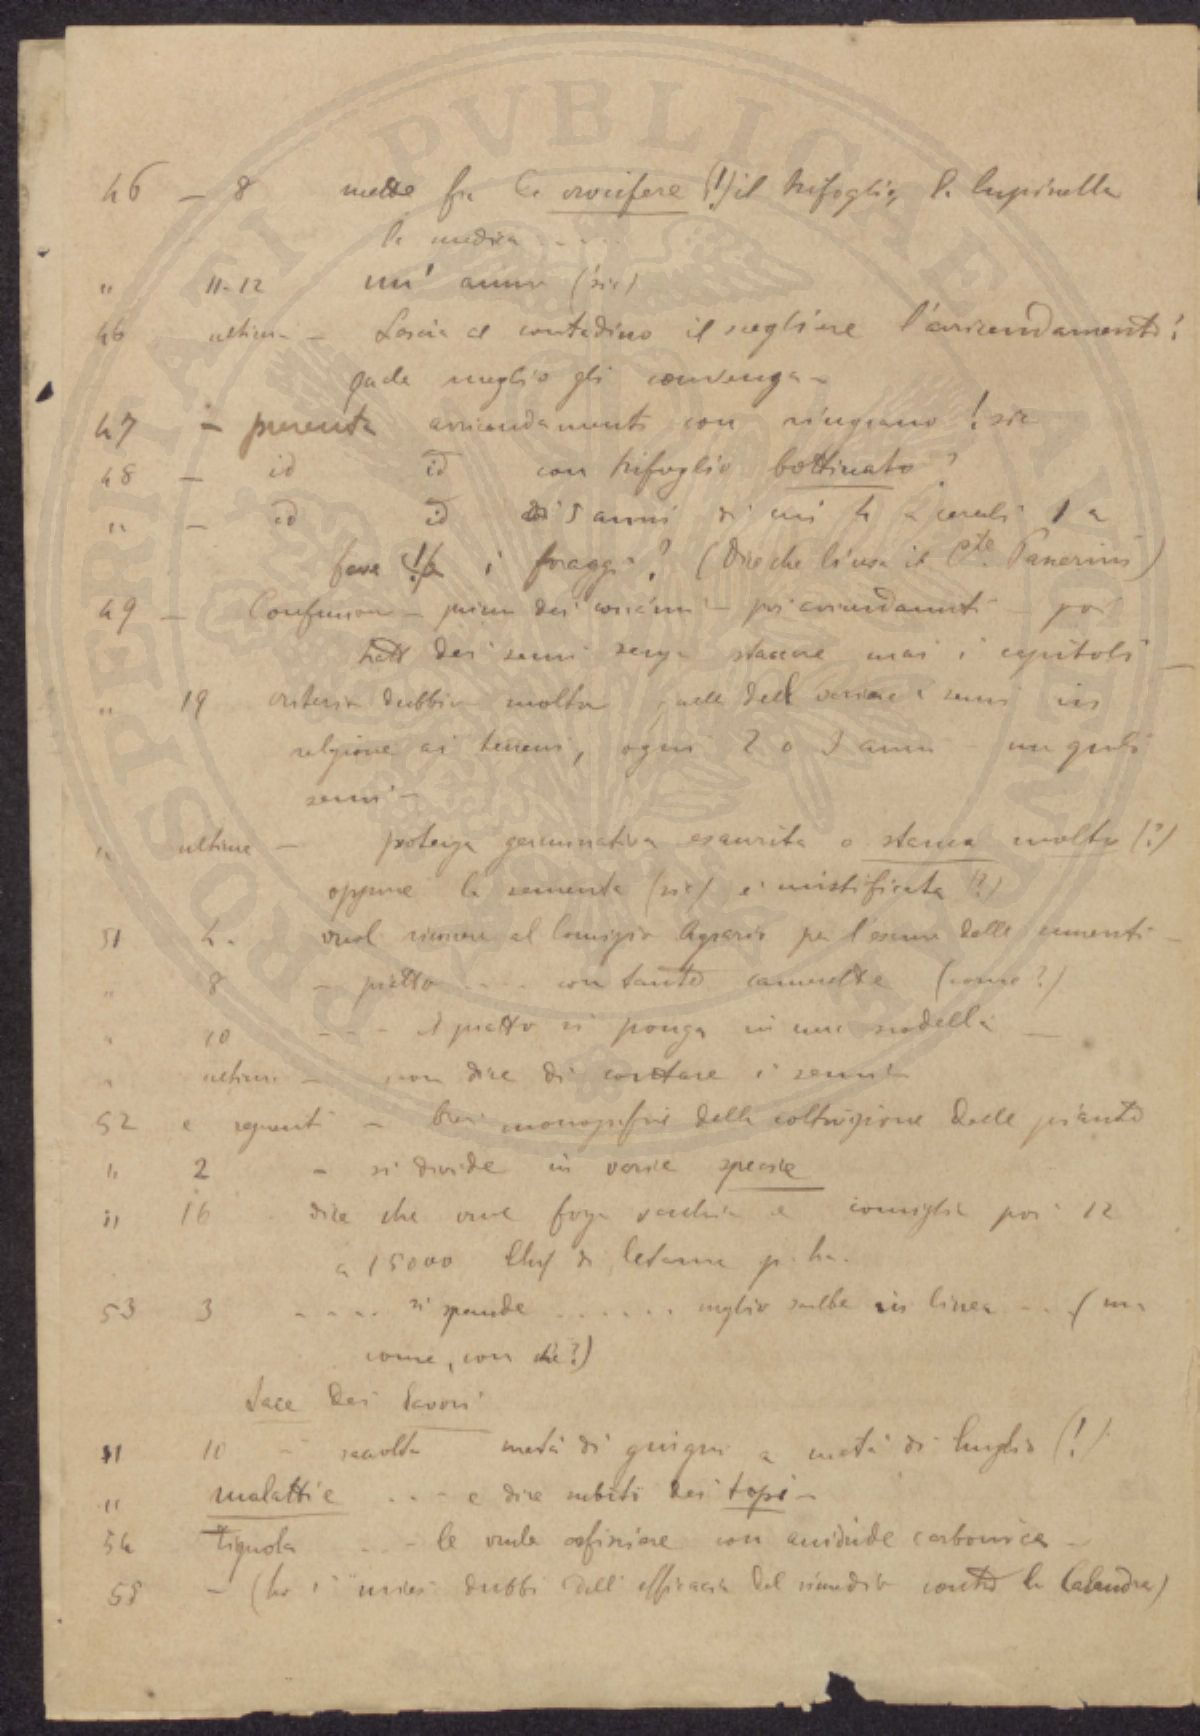 46 – 8 mette fra le crocifere (!) il trifoglio, la lupinella
la medica .....
" 11-12 un' anno (sic)
46 ultima – Lascia al contadino il scegliere l'avvicendamento
quale meglio gli convenga –
47 – presenta avvicendamenti con ringrano ! sic
48 – id id con trifoglio bottinato ?
" – id id di 5 anni di cui 4 a cereali 1 a
fave !! i foraggi ? (Dice che l'usa il Cte. Panerini)
49 – Confusione – prima dei concimi – poi avvicendamenti – poi
tratt dei semi senza staccare mai i capitoli –
" 19 criterio dubbio molto quello del variare i semi in
relazione ai terreni, ogni 2 o 3 anni –
semi –
" ultime – potenza germinativa esaurita o stanca molto (?)
oppure la sementa (sic) è mistificata (?)
51 4 – vuol ricorrere al Comizio Agrario per l'esame delle sementi –
" 8 – piatto .... con tante camerette (come ?)
" 10 --- il piatto si ponga in una scodella –
" ultima – non dice di contare i semi –
52 e seguenti – brevi monografie della coltivazione delle piante
" 2 – si divide in varie specie
" 16 . dice che vuole forza vecchia e consiglia poi 12
a 15000 Chg di letame p. ha.
53 3 .... si spande ...... meglio sarebbe in linea ... (ma
come, con chi ?)
Tace dei lavori
" 10 – raccolta metà di giugno a metà di luglio (!)
" malattie ... e dice subito dei topi –
54 Tignola ... – le vuole asfissiare con anidride carbonica –
58 – (ho i miei dubbi dell'efficacia del rimedio contro la Calandra)